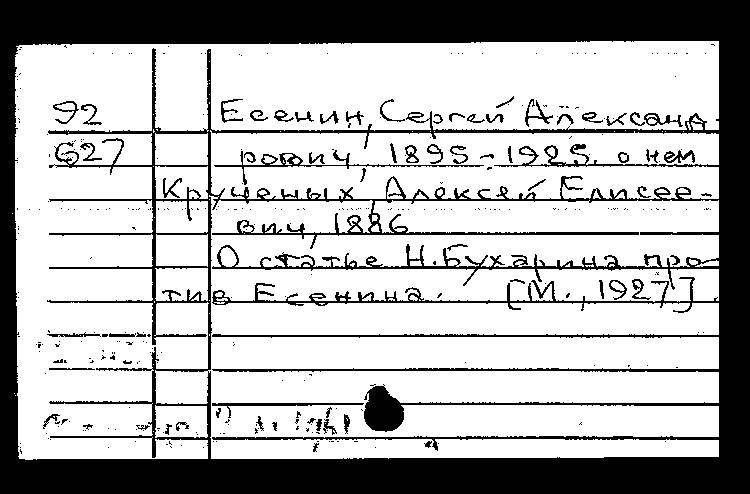 92 Есенин, Сергей Александ-
G27 рович, 1895-1925. о нем
Крученых, Алексей Елисее-
вич, 1886
О статье Н.Бухарина про-
тив Есенина. [М., 1927].